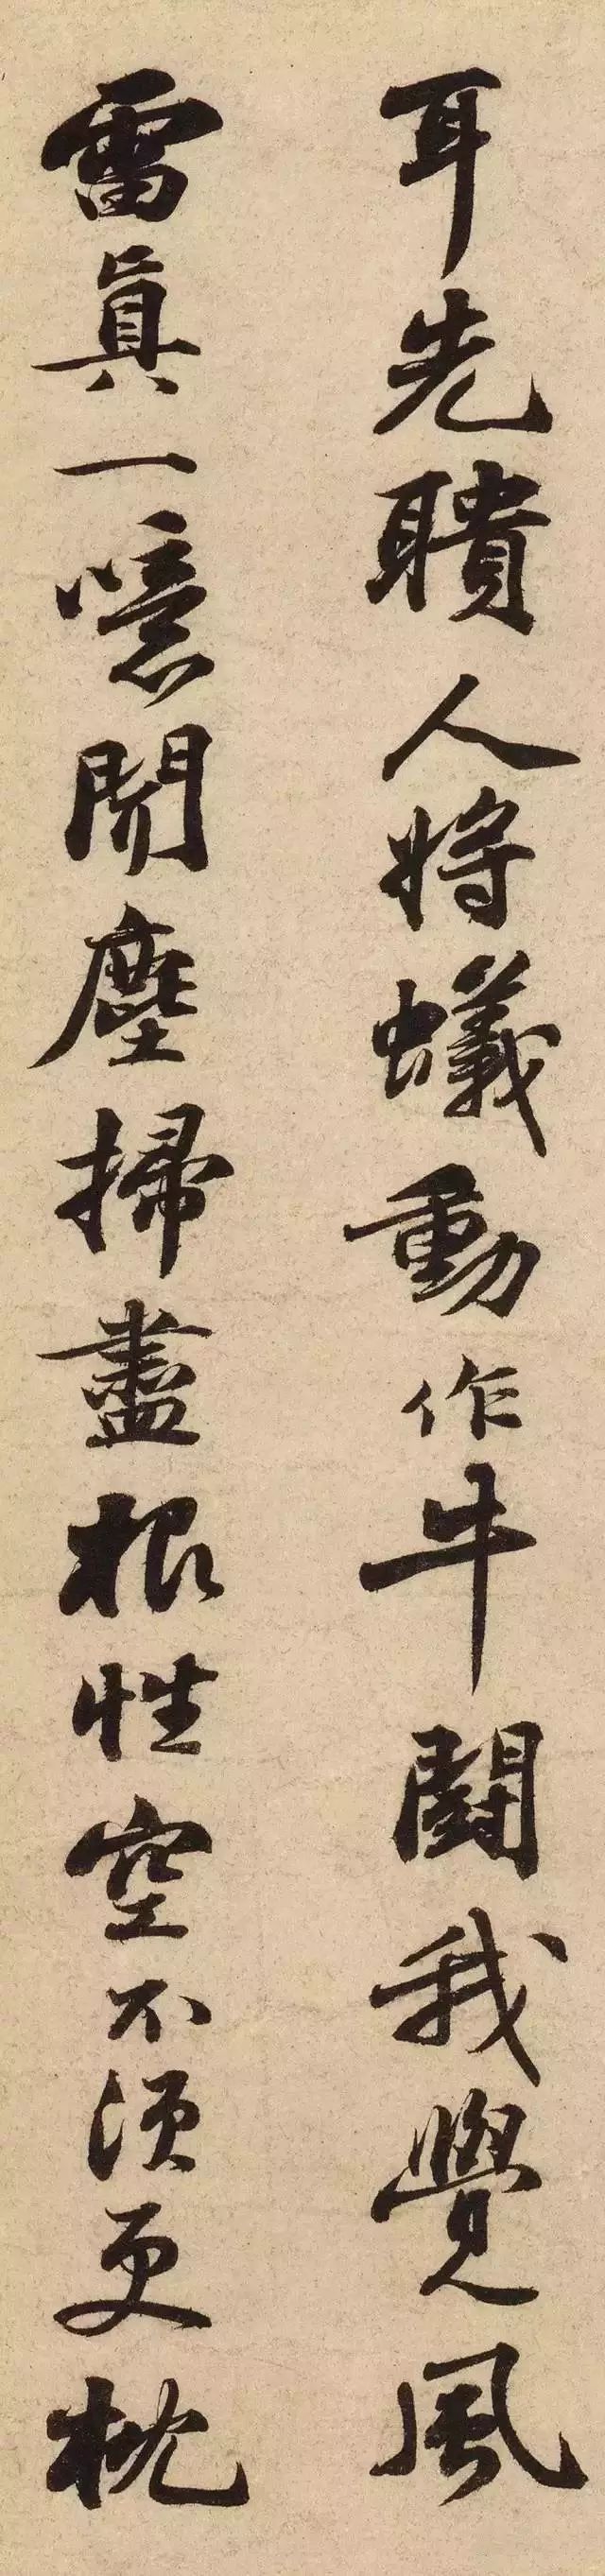 耳先聵人將蟻動作牛鬪我覺風
雷真一噫聞塵掃盡根性空不須更枕